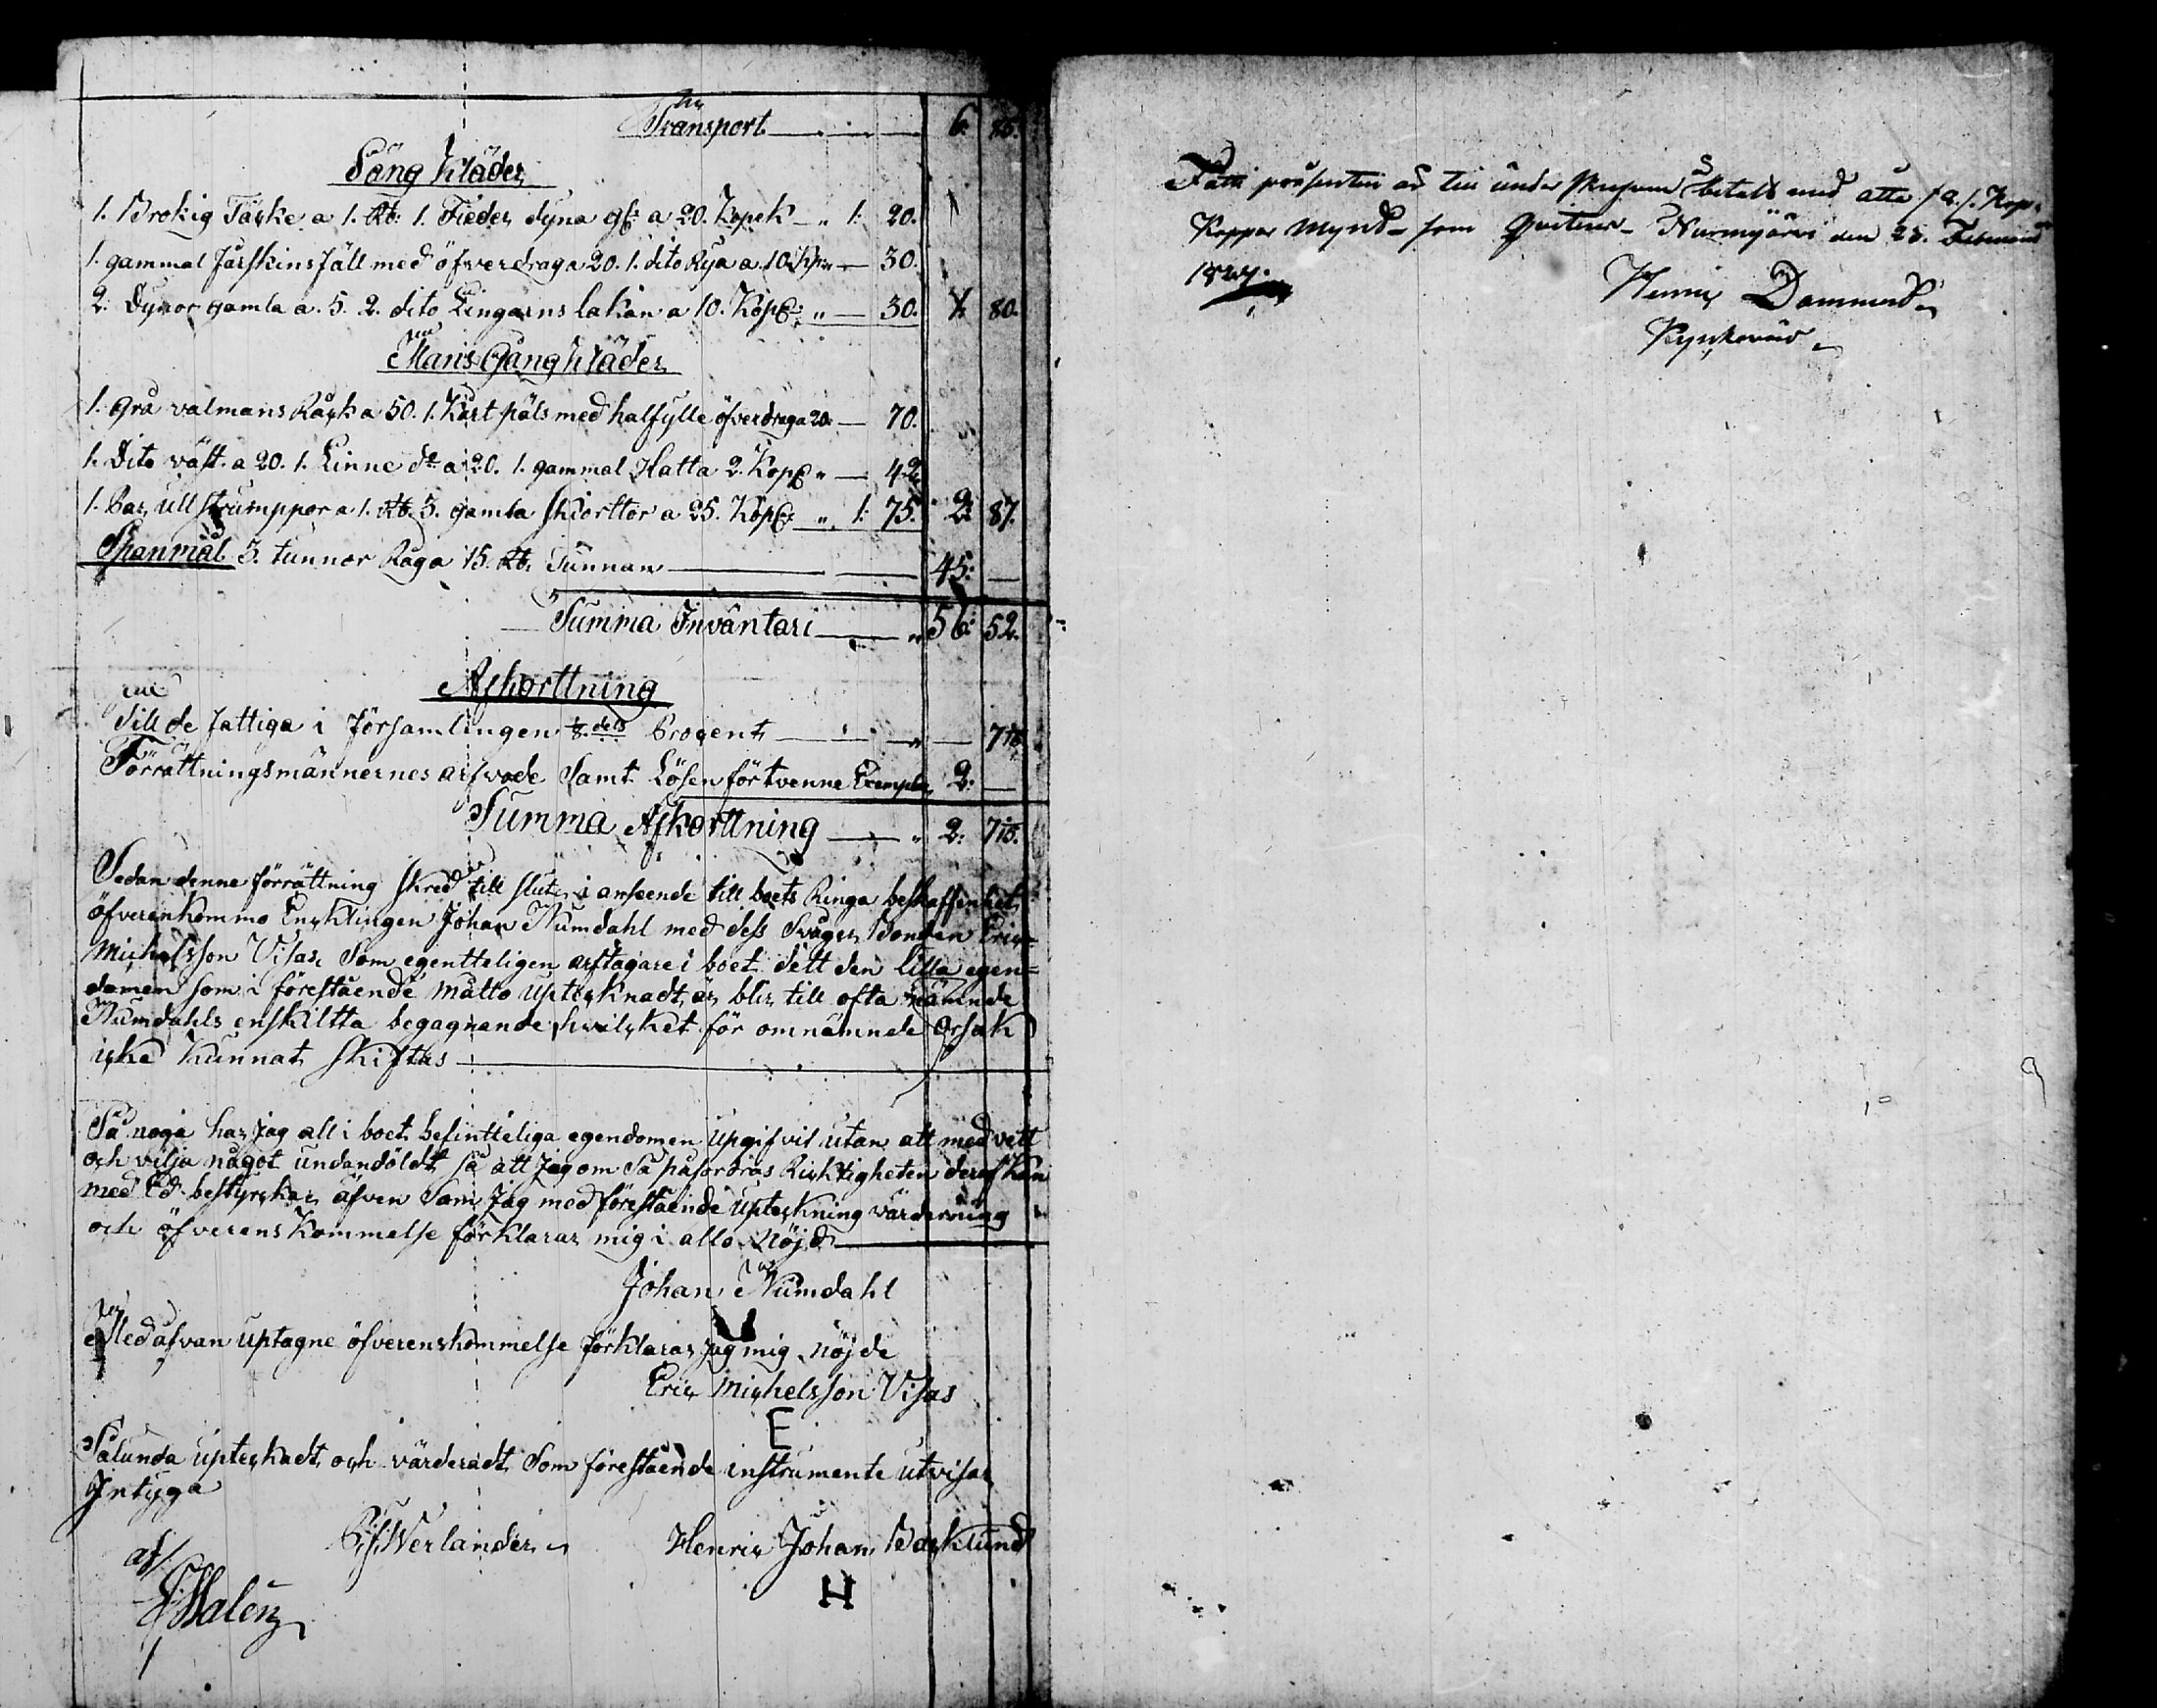 Transport 6: 85.
Säng Kläder
1. Brokig Täcke a 1. Rb: 1. Fieder dyna gl: a 20. Kopek „ 1: 20.
1. gammal Fårskins fäll med öfverdrag a 20. 1. dito Rya a 10. Kp: „ — 30.
2. Dynor gamla a. 5. 2. dito Lingarns lakan a 10. Kop: „ — 30. 1: 80.
Mans Gång Kläder
1. grå valmans Råck a 50. 1. Kort päls med halfylle öfverdrag a 20. — 70.
1. Dito väst. a 20. 1. Linne do a 20. 1. gammal Hatta 2. Kop: „ — 42
1. Par ull strumppor a 1. Rb. 3. gamla skiorttor a 25. Kop: „ 1: 75. 2: 87.
Spanmål 3. tunnor Råga 15. Rb. Tunnan 45: —
Summa Inväntari „ 56: 52.
Afkorttning
Till de fattiga i församlingen 1/8 dels Procent „ — 7
Förrättningsmännernes arfvode samt Lösen för tvenne Exemplar 2: —
Summa Afkorttning „ 2: 7
Sedan denne förrättning skred till slut, i anseende till boets Ringa beskaffenhet
öfverenkommo Encklingen Johan Numdahl med dess Svåger Bonden Eric
Michelsson Visas, Som egentteligen arftagare i boet. dett den lilla egen=
domen som i förestående måtto Uptecknadt, är blir till ofta nämnde
Numdahls enskiltta begagnande hvilcket för omnämnde Orsak
icke Kunnat skiftas
Så noga har Jag all i boet befintteliga egendomen Upgifvit utan att med vett
och vilja något undandöldt, så att Jag om Så påfordras Ricktigheten deraf kan
med Ed bestyrcka, äfven Som Jag med förestående Upteckning värdering
och öfverens Kommelse förklarar mig i allo Nöjd
Johan Numdahl
Med ofvan Uptagne öfverenskommelse förklarar Jag mig nöjde
Eric Michelsson Visas
E
Sålunda Uptecknadt och värderadt Som förestående instrumente Utvisar
Intyga
af/ Werlander Henric Johan Backlund
H
Fatti procenten är till under skrefven betalt med åtta /8./ Kop:
Koppar Mynt som Qvitteras Nurmijärvi den 28. Februari
1827.
Henric Dammert
Kyrckovärd